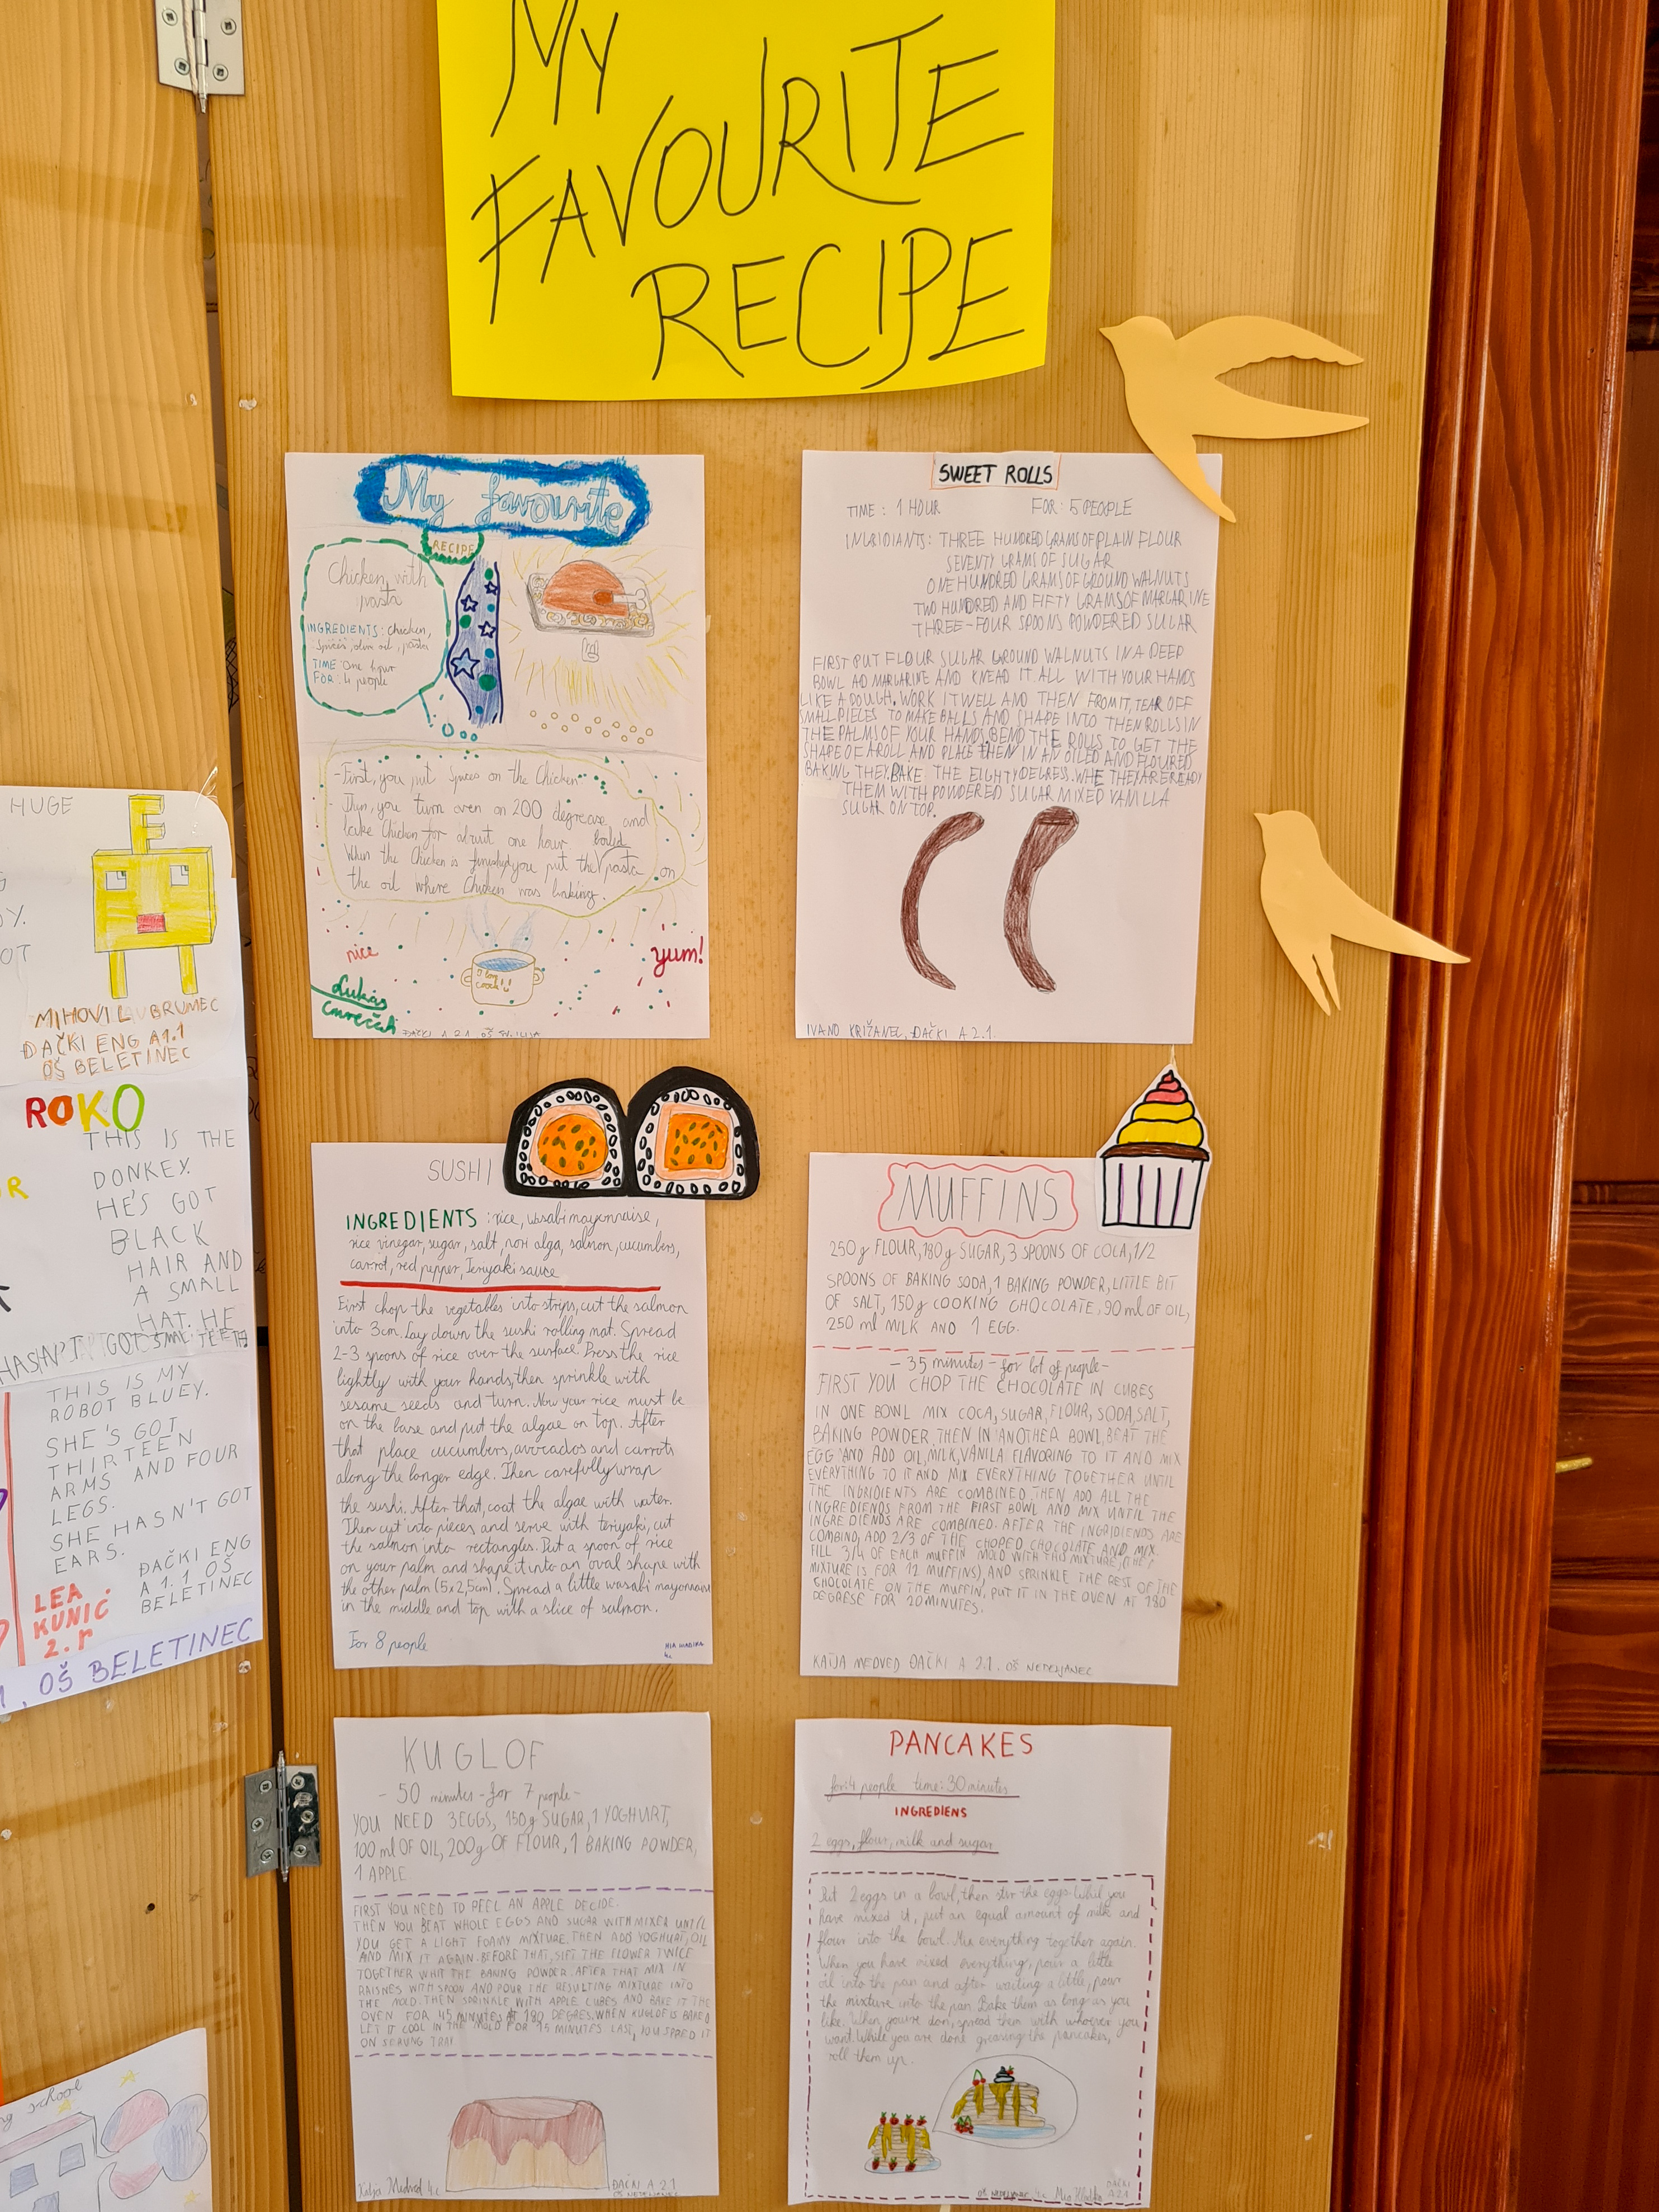 MY
FAVOURITE
RECIPE
My favourite
RECIPE
Chicken with
pasta
INGREDIENTS: chicken,
spices, oil, pasta
TIME: One hour
FOR: 4 people
-First, you put spices on the Chicken
you turn oven on 200 degrease and
bake Chicken for about one hour
boiled
When the Chicken is finished, you put the pasta on
the oil where Chicken was baking.
nice
yum!
I love
Lukas
ĐAČKI A 2.1. OŠ
SWEET ROLLS
TIME: 1 HOUR FOR: 5 PEOPLE
INGRIDIANTS: THREE HUNDRED GRAMS OF PLAIN FLOUR
SEVENTY GRAMS OF SUGAR
ONE HUNDRED GRAMS OF GROUND WALNUTS
TWO HUNDRED AND FIFTY GRAMS OF MARGARINE
THREE-FOUR SPOONS POWDERED SUGAR
FIRST PUT FLOUR SUGAR GROUND WALNUTS IN A DEEP
BOWL AD MARGARINE AND KNEAD IT ALL WITH YOUR HANDS
LIKE A DOUGH. WORK IT WELL AND THEN FROM IT, TEAR OFF
SMALL PIECES TO MAKE BALLS AND SHAPE INTO THEN ROLLS IN
THE PALMS OF YOUR HANDS, BEND THE ROLLS TO GET THE
SHAPE OF A ROLL AND PLACE THEN IN AN OILED AND FLOURED
BAKING THEY. BAKE THE EIGHTY DEGRESS. WHE THEY ARE READY
THEM WITH POWDERED SUGAR MIXED VANILLA
SUGAR ON TOP.
IVANO KRIŽANEC, ĐAČKI A 2.1.
SUSHI
INGREDIENTS: rice, wasabi mayonnaise,
rice vinegar, sugar, salt, nori alga, salmon, cucumbers,
carrot, red pepper, Teriyaki sauce
First chop the vegetables into strips, cut the salmon
into 3cm. Lay down the sushi rolling mat. Spread
2-3 spoons of rice over the surface. Press the rice
lightly with your hands, then sprinkle with
sesame seeds and turn. Now your rice must be
on the base and put the algae on top. After
that place cucumbers, avocados and carrots
along the longer edge. Then carefully wrap
the sushi. After that, coat the algae with water.
Then cut into pieces and serve with teriyaki, cut
the salmon into rectangles. Put a spoon of rice
on your palm and shape it into an oval shape with
the other palm (5x2,5cm). Spread a little wasabi mayonnaise
in the middle and top with a slice of salmon.
For 8 people
MUFFINS
250g FLOUR, 180g SUGAR, 3 SPOONS OF COCA, 1/2
SPOONS OF BAKING SODA, 1 BAKING POWDER, LITTLE BIT
OF SALT, 150g COOKING CHOCOLATE, 90 ml OF OIL,
250 ml MILK AND 1 EGG.
- 35 minutes - for lot of people -
FIRST YOU CHOP THE CHOCOLATE IN CUBES
IN ONE BOWL MIX COCA, SUGAR, FLOUR, SODA, SALT,
BAKING POWDER, THEN IN ANOTHER BOWL, BEAT THE
EGG AND ADD OIL, MILK, VANILA FLAVORING TO IT AND MIX
EVERYTHING TO IT AND MIX EVERYTHING TOGETHER UNTIL
THE INGRIDIENTS ARE COMBINED. THEN ADD ALL THE
INGREDIENDS FROM THE FIRST BOWL AND MIX UNTIL THE
INGREDIENDS ARE COMBINED. AFTER THE INGRIDIENDS ARE
COMBIND, ADD 2/3 OF THE CHOPED CHOCOLATE AND MIX.
FILL 3/4 OF EACH MUFFIN MOLD WITH THIS MIXTURE, (THE
MIXTURE IS FOR 12 MUFFINS), AND SPRINKLE THE REST OF THE
CHOCOLATE ON THE MUFFIN, PUT IT IN THE OVEN AT 180
DEGRESE FOR 20 MINUTES.
KATJA MEDVED ĐAČKI A 2.1. OŠ NEDELJANEC
KUGLOF
- 50 minutes - for 7 people -
YOU NEED 3 EGGS, 150g SUGAR, 1 YOGHURT,
100 ml OF OIL, 200g OF FLOUR, 1 BAKING POWDER,
1 APPLE
FIRST YOU NEED TO PEEL AN APPLE DECIDE.
THEN YOU BEAT WHOLE EGGS AND SUGAR WITH MIXER UNTIL
YOU GET A LIGHT FOAMY MIXTURE. THEN ADD YOGHURT, OIL
AND MIX IT AGAIN. BEFORE THAT, SIFT THE FLOWER TWICE
TOGETHER WHIT THE BAKING POWDER. AFTER THAT MIX IN
RAISNES WITH SPOON AND POUR THE RESULTING MIXTURE INTO
THE MOLD. THEN SPRINKLE WITH APPLE CUBES AND BAKE IT THE
OVEN FOR 45 MINUTES AT 180 DEGRES. WHEN KUGLOF IS BAKED
LET IT COOL IN THE MOLD FOR 15 MINUTES LAST, YOU SPRED IT
ON SERVING TRAY
Katja Medved 4.c
ĐAČKI A 2.1
OŠ NEDELJANEC
PANCAKES
for: 4 people time: 30 minutes
INGREDIENS
2 eggs, flour, milk and sugar
Put 2 eggs in a bowl, then stir the eggs. Whil you
have mixed it, put an equal amount of milk and
flour into the bowl. Mix everything together again.
When you have mixed everything, pour a little
oil into the pan and after waiting a little, pour
the mixture into the pan. Bake them as long as you
like. When you're don, spread them with whoever you
want. While you are done greasing the pancakes,
roll them up.
OŠ NEDELJANEC 4.c Mia
ĐAČKI
A 2.1
HUGE
MIHOVIL BRUMEC
ĐAČKI ENG A1.1
OŠ BELETINEC
ROKO
THIS IS THE
DONKEY.
HE'S GOT
BLACK
HAIR AND
A SMALL
HAT. HE
HASN'T GOT TEETH
THIS IS MY
ROBOT BLUEY.
SHE'S GOT
THIRTEEN
ARMS AND FOUR
LEGS.
SHE HASN'T GOT
EARS.
ĐAČKI ENG
A 1.1 OŠ
BELETINEC
LEA
KUNIĆ
2. r
, OŠ BELETINEC
school